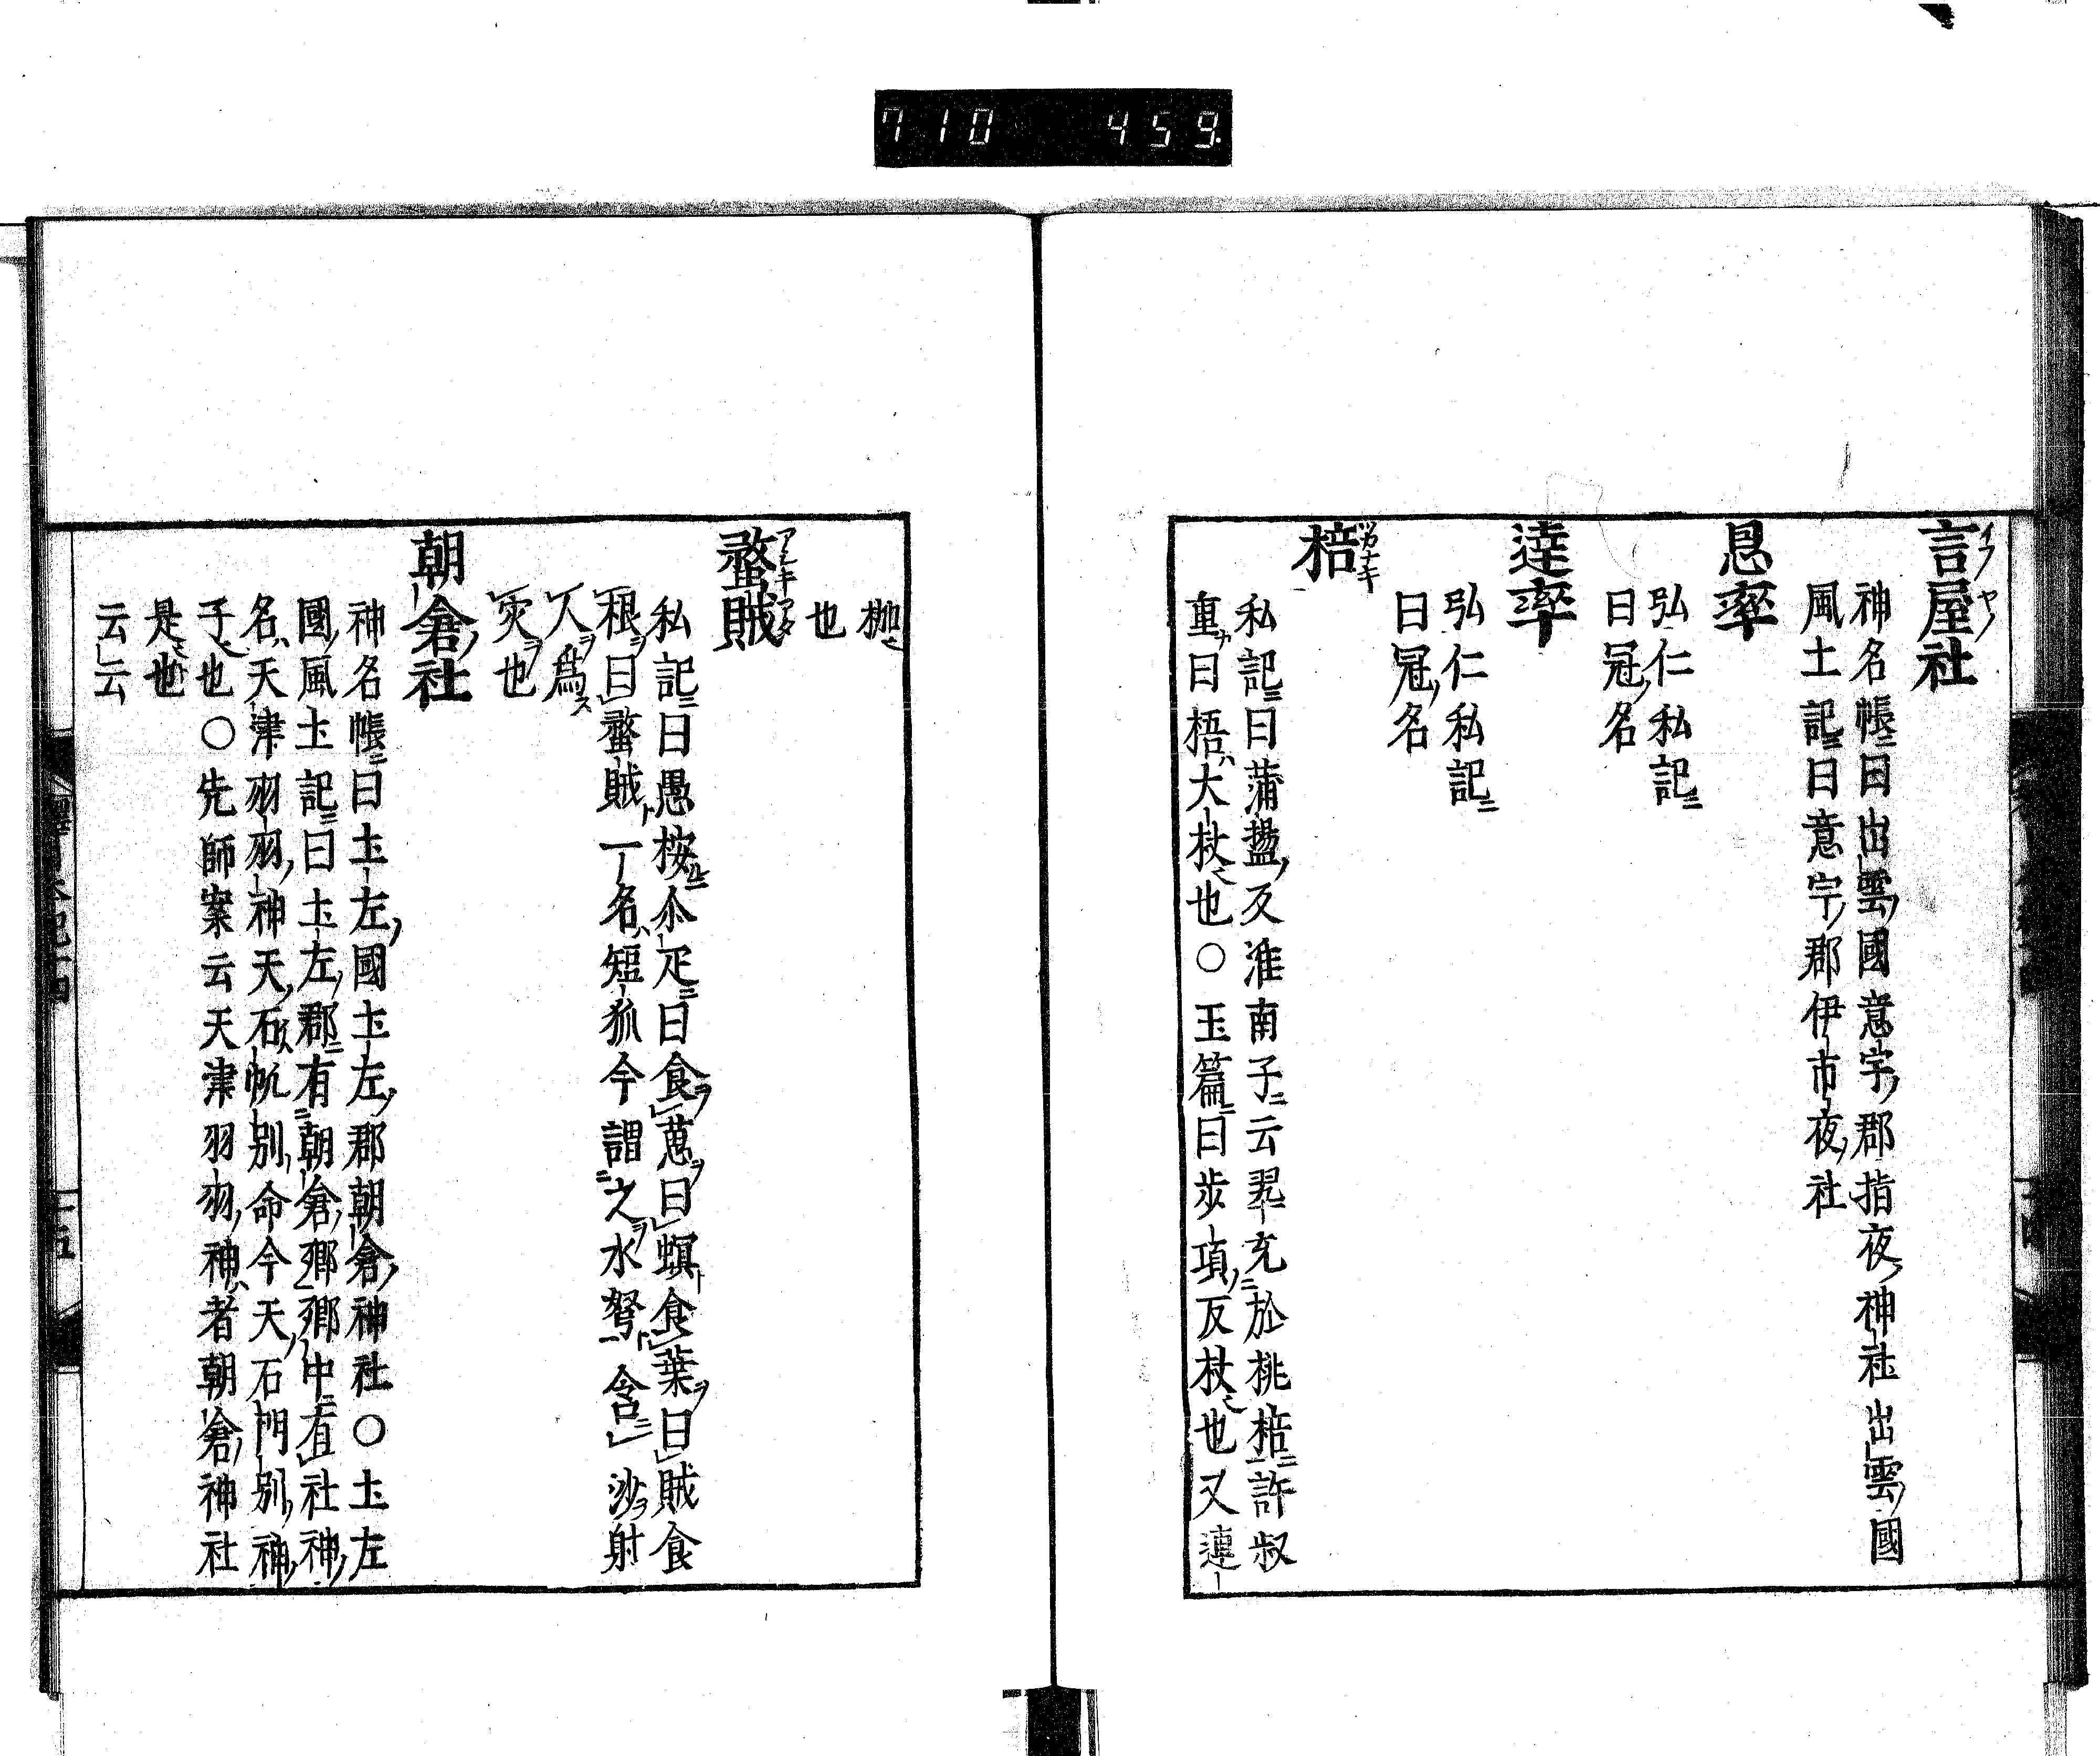 710 459
言屋社
神名帳曰出雲國意宇郡指夜神社出雲國
風土記曰意宇郡伊市夜社
恩率
弘仁私記
曰冠名
達率
弘仁私記
曰冠名
棓
私記曰蒲盪反淮南子云羿死於桃棓許叔
重曰棓大杖也〇玉篇曰步項反杖也又連
枷也
蝥賊
私記曰愚按尒疋曰食葸曰螟食葉曰賊食
根曰蝥賊一名短狐今謂之水弩含沙射
人爲
灾也
朝倉社
神名帳曰土左國土左郡朝倉神社〇土左
國風土記曰土左郡有朝倉鄉鄉中有社神
名天津羽羽神天石帆別命今天石門別神
子也〇先師案云天津羽羽神者朝倉神社
是也
云云